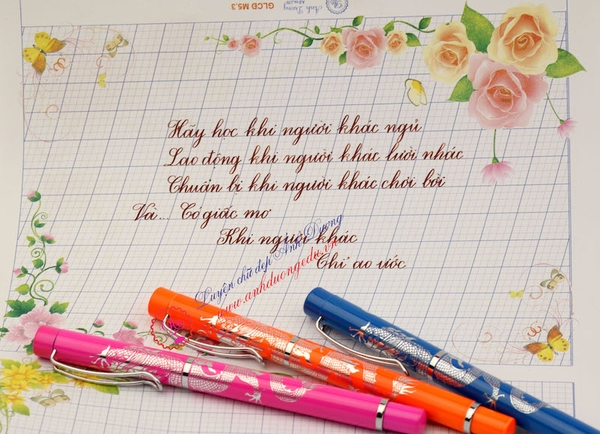 GLCĐ M5.3
Ánh Dương
Hãy học khi người khác ngủ
Lao động khi người khác lười nhác
Chuẩn bị khi người khác chơi bời
Và... Có giấc mơ
Khi người khác
Chỉ ao ước
Luyện chữ đẹp Ánh Dương
www.anhduongedu.vn